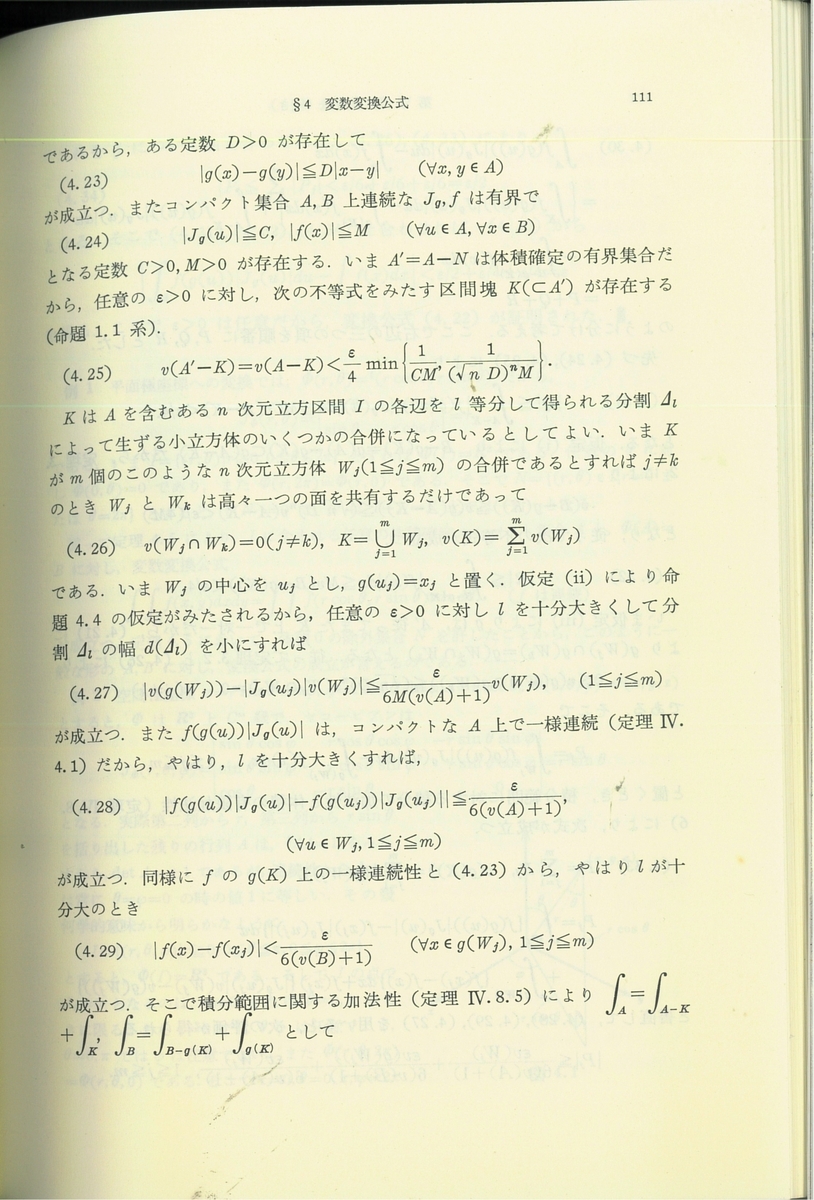 §4 変数変換公式 111
であるから, ある定数 D>0 が存在して
(4.23) |g(x)−g(y)|≦D|x−y| (∀x, y∈A)
が成立つ. またコンパクト集合 A, B 上連続な J_g, f は有界で
(4.24) |J_g(u)|≦C, |f(x)|≦M (∀u∈A, ∀x∈B)
となる定数 C>0, M>0 が存在する. いま A′=A−N は体積確定の有界集合だ
から, 任意の ε>0 に対し, 次の不等式をみたす区間塊 K(⊂A′) が存在する
(命題 1.1 系).
(4.25) v(A′−K)=v(A−K)<ε/4 min{1/CM, 1/(√n D)^n M}.
K は A を含むある n 次元立方区間 I の各辺を l 等分して得られる分割 Δ_l
によって生ずる小立方体のいくつかの合併になっているとしてよい. いま K
が m 個のこのような n 次元立方体 W_j(1≦j≦m) の合併であるとすれば j≠k
のとき W_j と W_k は高々一つの面を共有するだけであって
(4.26) v(W_j∩W_k)=0(j≠k), K=⋃_{j=1}^m W_j, v(K)=∑_{j=1}^m v(W_j)
である. いま W_j の中心を u_j とし, g(u_j)=x_j と置く. 仮定 (ii) により命
題 4.4 の仮定がみたされるから, 任意の ε>0 に対し l を十分大きくして分
割 Δ_l の幅 d(Δ_l) を小にすれば
(4.27) |v(g(W_j))−|J_g(u_j)|v(W_j)|≦ε/6M(v(A)+1) v(W_j), (1≦j≦m)
が成立つ. また f(g(u))|J_g(u)| は, コンパクトな A 上で一様連続 (定理 Ⅳ.
4.1) だから, やはり, l を十分大きくすれば,
(4.28) |f(g(u))|J_g(u)|−f(g(u_j))|J_g(u_j)||≦ε/6(v(A)+1),
(∀u∈W_j, 1≦j≦m)
が成立つ. 同様に f の g(K) 上の一様連続性と (4.23) から, やはり l が十
分大のとき
(4.29) |f(x)−f(x_j)|<ε/6(v(B)+1) (∀x∈g(W_j), 1≦j≦m)
が成立つ. そこで積分範囲に関する加法性 (定理 Ⅳ.8.5) により ∫_A=∫_{A−K}
+∫_K, ∫_B=∫_{B−g(K)}+∫_{g(K)} として